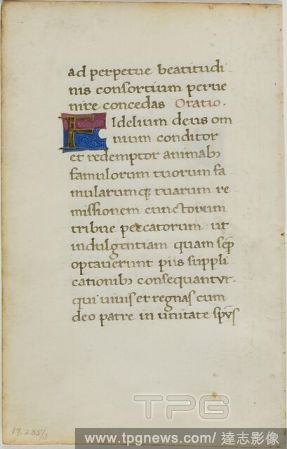 ad perpetue beatitudi
nis consortium perve
nire concedas Oratio.
Fidelium deus om
nium conditor
et redemptor animab
famulorum tuorum fa
mularumq tuarum re
missionem cunctorum
tribue peccatorum ut
indulgentiam quam sep
optaverunt piis suppli
cationib consequantur.
qui vivis et regnas cum
deo patre in unitate spūs
TPG
www.tpgnews.com/ 達志影像